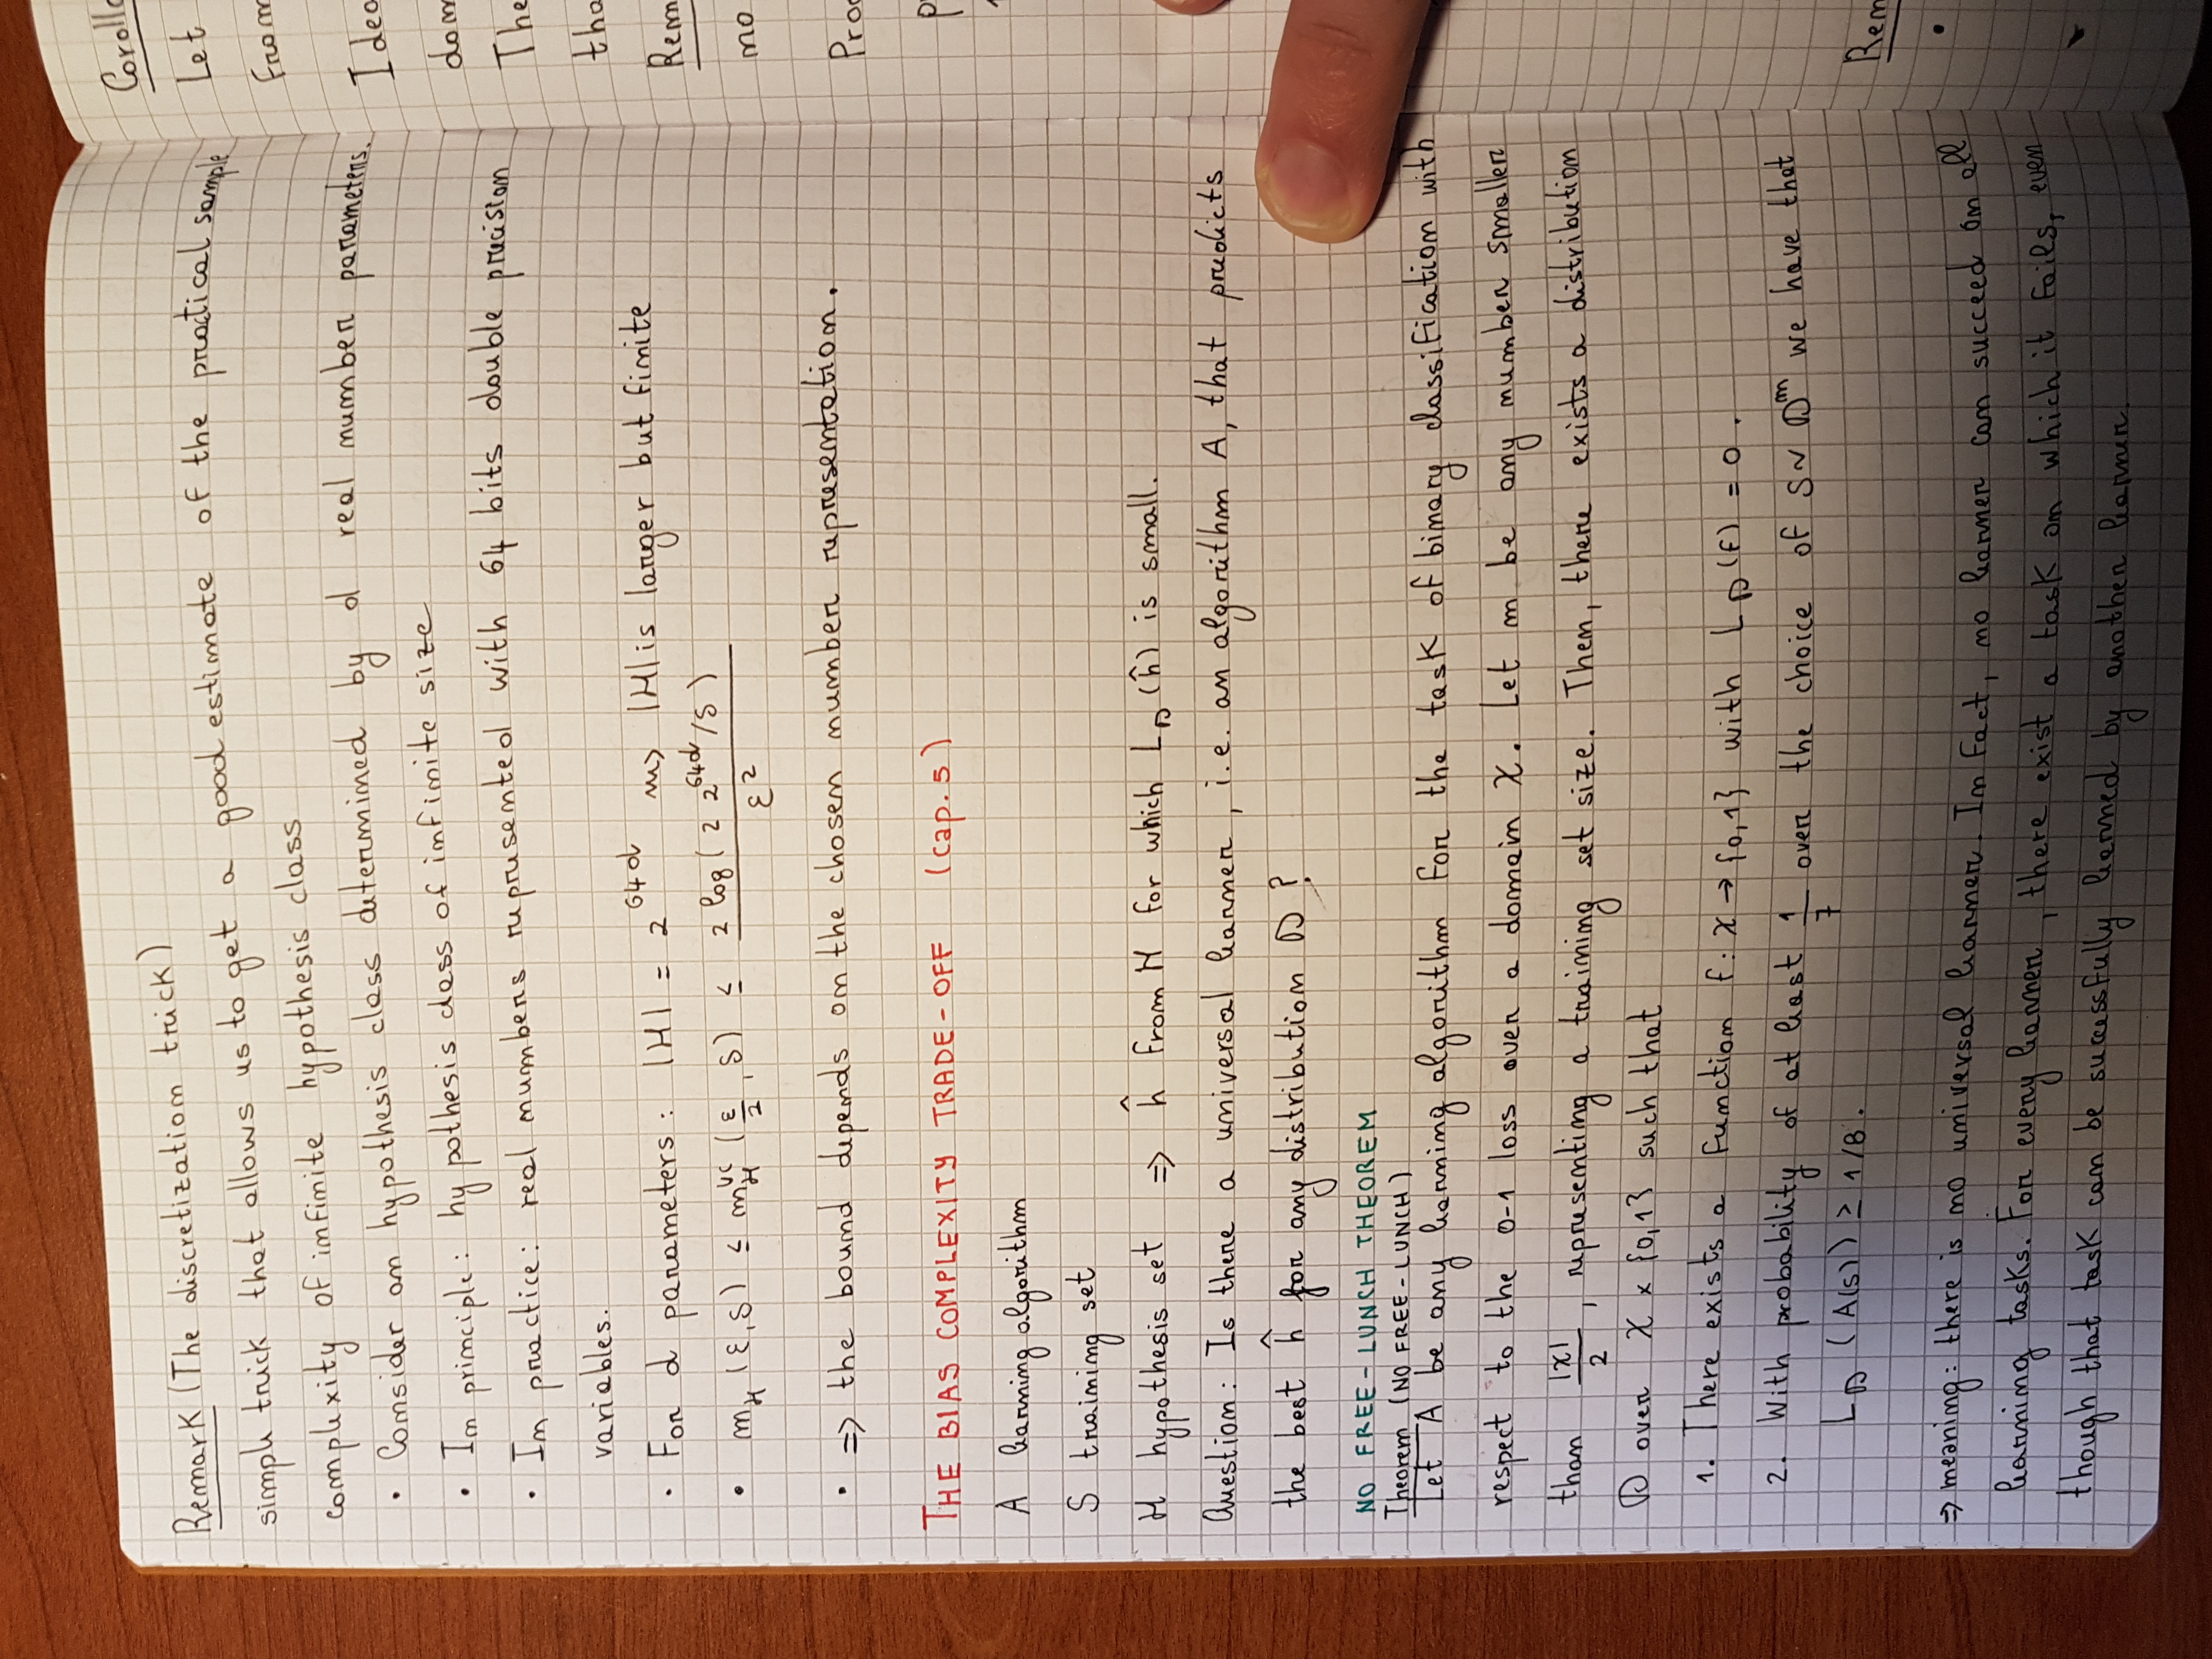 Remark (The discretization trick)
simple trick that allows us to get a good estimate of the practical sample
complexity of infinite hypothesis class
• Consider an hypothesis class determined by d real number parameters.
• In principle: hypothesis class of infinite size
• In practice: real numbers represented with 64 bits double precision
variables.
• For d parameters: |H| = 2^{64d} ⇝ |H| is larger but finite
• m_H (ε,δ) ≤ m_H^{UC} (ε/2, δ) ≤ 2 log(2 2^{64d}/δ) / ε²
• => the bound depends on the chosen number representation.
THE BIAS COMPLEXITY TRADE-OFF (cap. 5)
A learning algorithm
S training set
H hypothesis set => ĥ from H for which L_D(ĥ) is small.
Question: Is there a universal learner, i.e. an algorithm A, that predicts
the best ĥ for any distribution D?
NO FREE-LUNCH THEOREM
Theorem (NO FREE-LUNCH)
Let A be any learning algorithm for the task of binary classification with
respect to the 0-1 loss over a domain X. Let m be any number smaller
than |X|/2, representing a training set size. Then, there exists a distribution
D over X × {0,1} such that
1. There exists a function f: X → {0,1} with L_D(f) = 0.
2. With probability of at least 1/7 over the choice of S ~ D^m we have that
L_D (A(S)) ≥ 1/8.
=> meaning: there is no universal learner. In fact, no learner can succeed on all
learning tasks. For every learner, there exist a task on which it fails, even
though that task can be successfully learned by another learner.
Let
From
The